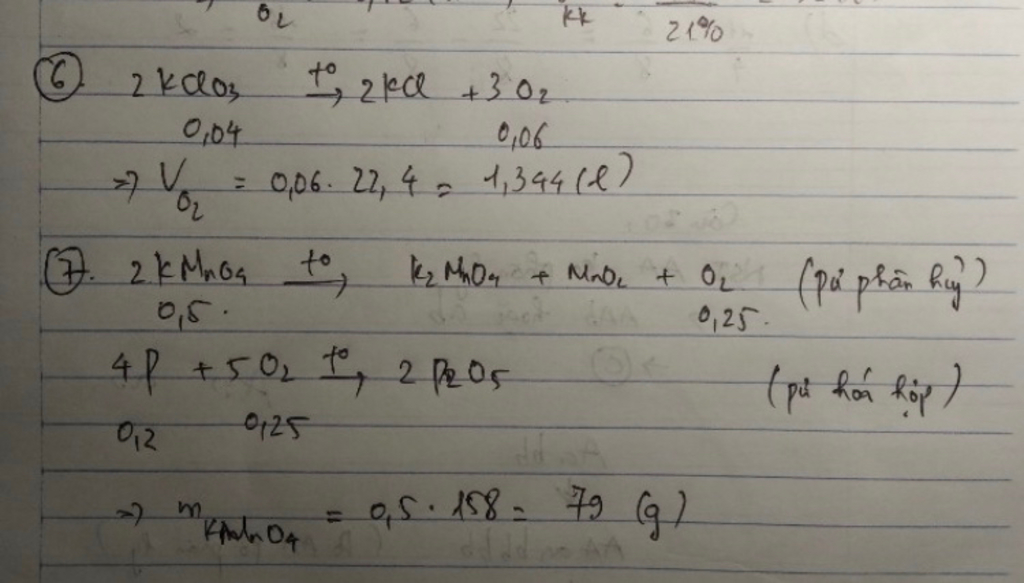 O2 kk 21%
6. 2KClO3 t° → 2KCl + 3O2
0,04 0,06
=> V O2 = 0,06 . 22,4 = 1,344 (l)
7. 2KMnO4 t° → K2MnO4 + MnO2 + O2 (pứ phân huỷ)
0,5. 0,25.
4P + 5O2 t° → 2P2O5 (pứ hoá hợp)
0,2 0,25
=> m KMnO4 = 0,5 . 158 = 79 (g)